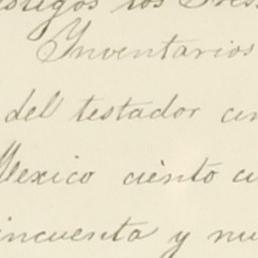 los
Inventarios
del testador
Mexico ciento
cincuenta y